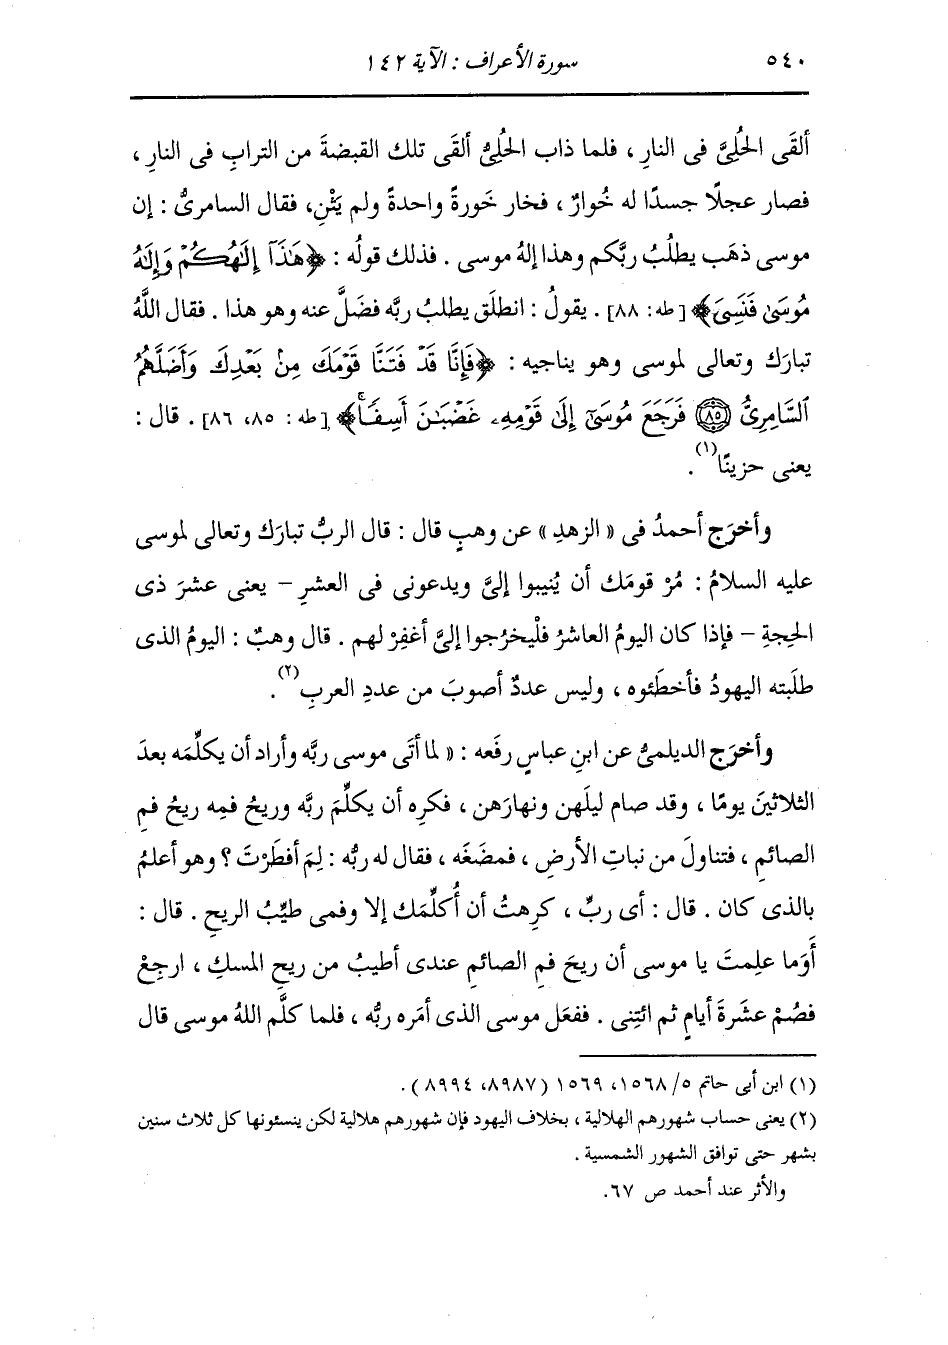 ٥٤٠ سورة الأعراف : الآية ١٤٢
ألقَى الحُلِيَّ فى النارِ ، فلما ذاب الحُلِيُّ ألقَى تلك القبضةَ من الترابِ فى النارِ ،
فصار عجلًا جسدًا له خُوارٌ ، فخار خَورةً واحدةً ولم يَثْنِ، فقال السامرىُّ : إن
موسى ذهَب يطلُبُ ربَّكم وهذا إلهُ موسى . فذلك قولُه : ﴿هَٰذَآ إِلَٰهُكُمْ وَإِلَٰهُ
مُوسَىٰ فَنَسِىَ﴾ [طه: ٨٨] . يقولُ : انطلَق يطلبُ ربه فضَلَّ عنه وهو هذا . فقال اللَّهُ
تبارَك وتعالى لموسى وهو يناجيه : ﴿فَإِنَّا قَدْ فَتَنَّا قَوْمَكَ مِنۢ بَعْدِكَ وَأَضَلَّهُمُ
ٱلسَّامِرِىُّ ﴿٨٥﴾ فَرَجَعَ مُوسَىٰٓ إِلَىٰ قَوْمِهِۦ غَضْبَـٰنَ أَسِفًا﴾ [طه: ٨٥، ٨٦] . قال :
يعنى حزينًا(١) .
وأخرَج أحمدُ فى « الزهدِ » عن وهبٍ قال : قال الربُّ تبارَك وتعالى لموسى
عليه السلامُ : مُرْ قومَك أن يُنيبوا إلىَّ ويدعونى فى العشرِ – يعنى عشرَ ذى
الحِجةِ – فإذا كان اليومُ العاشرُ فلْيخرُجوا إلىَّ أغفِرْ لهم . قال وهبٌ : اليومُ الذى
طلَبته اليهودُ فأخطَئوه ، وليس عددٌ أصوبَ من عددِ العربِ(٢) .
وأخرَج الديلمىُّ عن ابنِ عباسٍ رفَعه : « لما أتَى موسى ربَّه وأراد أن يكلِّمَه بعدَ
الثلاثينَ يومًا ، وقد صام ليلَهن ونهارَهن ، فكرِه أن يكلِّمَ ربَّه وريحُ فمِه ريحُ فمِ
الصائمِ ، فتناولَ من نباتِ الأرضِ ، فمضَغَه ، فقال له ربُّه : لِمَ أفطَرْتَ ؟ وهو أعلمُ
بالذى كان . قال : أى ربِّ ، كرِهتُ أن أُكلِّمَك إلا وفمى طيِّبُ الريحِ . قال :
أَوَما علِمتَ يا موسى أن ريحَ فمِ الصائمِ عندى أطيبُ من ريحِ المسكِ ، ارجِعْ
فصُمْ عشَرةَ أيامٍ ثم ائتِنى . ففعَل موسى الذى أمَره ربُّه ، فلما كلَّم اللهُ موسى قال
(١) ابن أبى حاتم ٥/ ١٥٦٨، ١٥٦٩ (٨٩٨٧، ٨٩٩٤) .
(٢) يعنى حساب شهورهم الهلالية ، بخلاف اليهود فإن شهورهم هلالية لكن ينسئونها كل ثلاث سنين
بشهر حتى توافق الشهور الشمسية .
والأثر عند أحمد ص ٦٧.